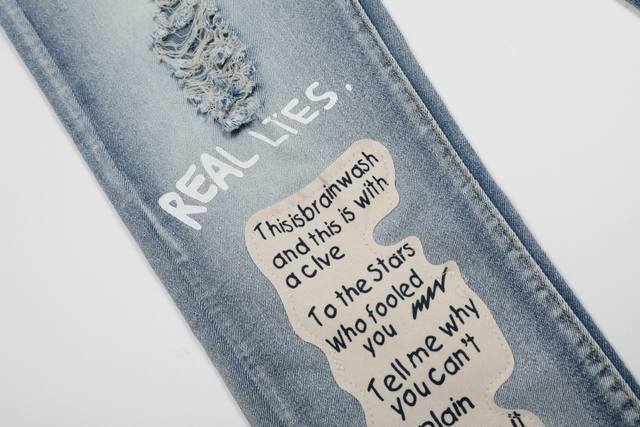 REAL LIES.
Thisisbrainwash
and this is with
a clve
To the Stars
Who fooled
you
Tell me why
you can't
plain
it